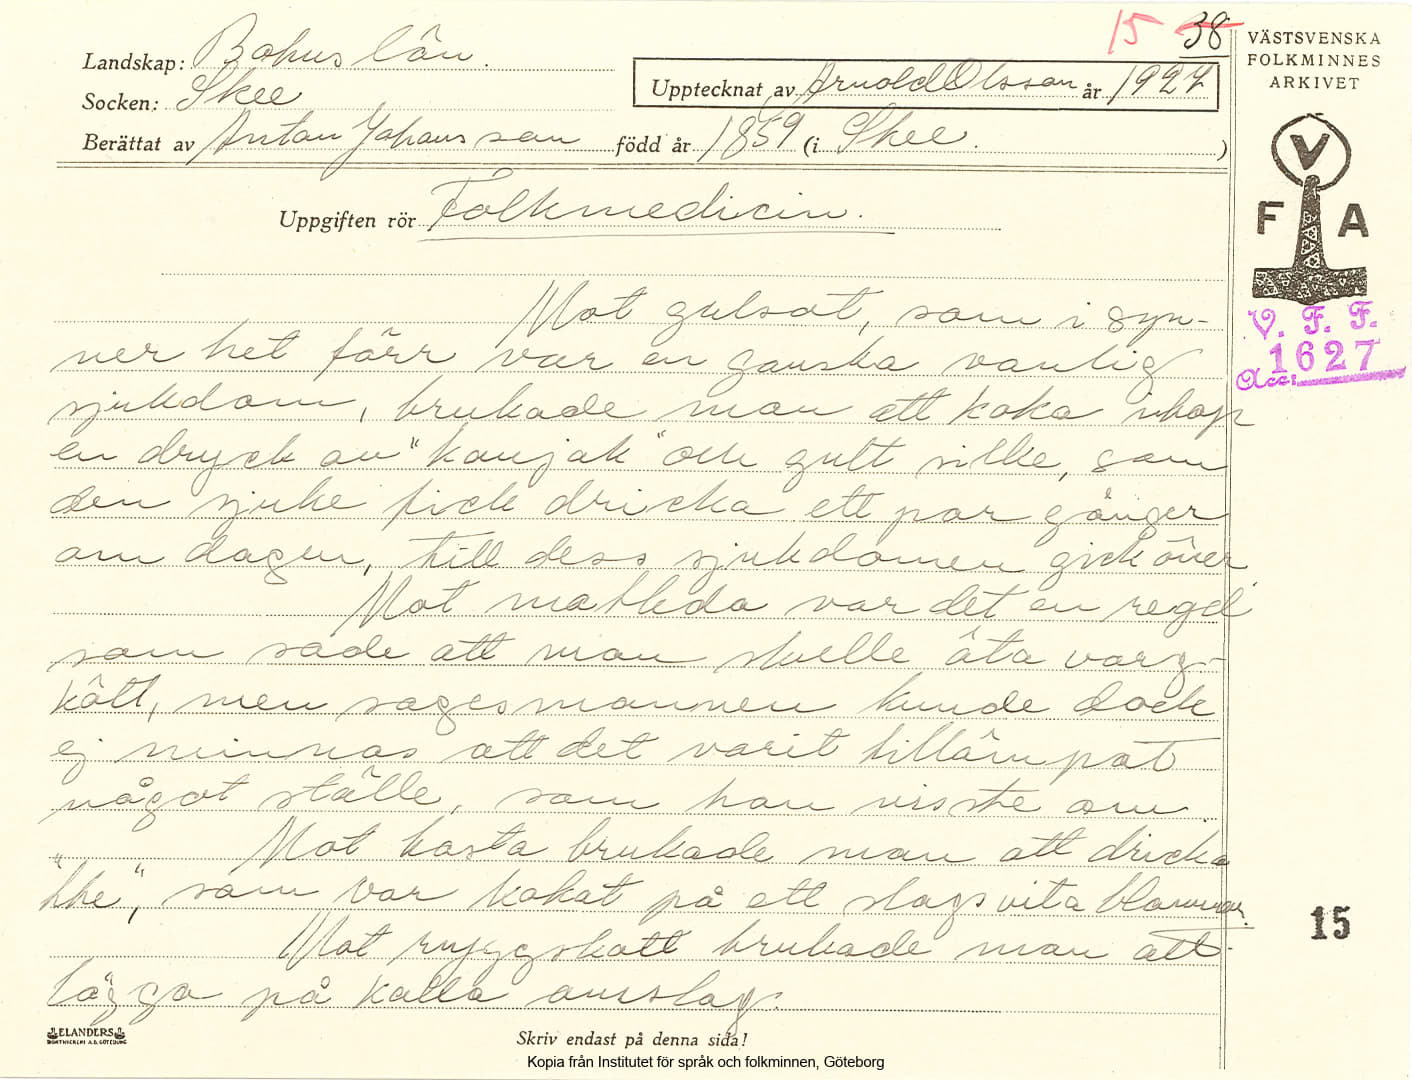 15 38
Landskap: Bohuslän.
Socken: Skee
Upptecknat av Arnold Olsson år 1927
Berättat av Anton Johansson född år 1859 (i Skee.)
VÄSTSVENSKA
FOLKMINNES
ARKIVET
V
F A
V. F. F.
Acc: 1627
Uppgiften rör Folkmedicin.
Mot gulsot, som i syn-
ner het förr var en ganska vanlig
sjukdom, brukade man att koka ihop
en dryck av "konjak" och gult silke, som
den sjuke fick dricka ett par gånger
om dagen, till dess sjukdomen gick över.
Mot matleda var det en regel
som sade att man skulle äta varg-
kött, men sagesmannen kunde dock
ej minnas att det varit tillämpat
något ställe, som han visste om.
Mot hosta brukade man att dricka
"the", som var kokat på ett slags vita blommor.
Mot ryggskott brukade man att
lägga på kalla omslag.
15
ELANDERS
BOKTRYCKERI A.B. GÖTEBORG
Skriv endast på denna sida!
Kopia från Institutet för språk och folkminnen, Göteborg